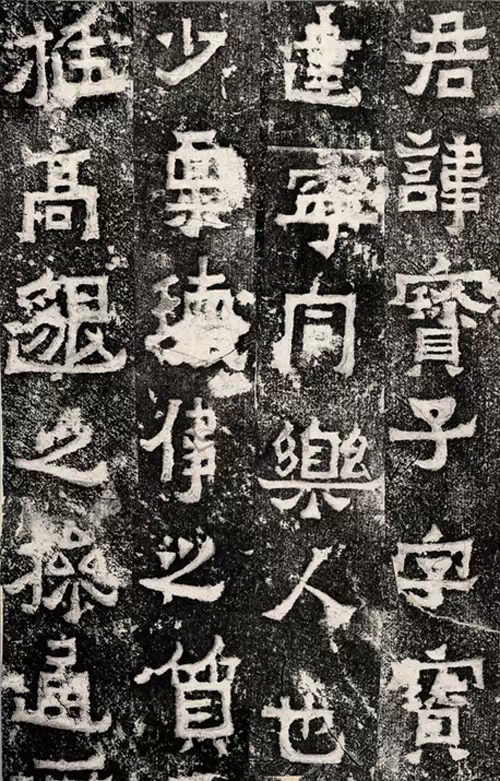 君諱寶子字寶
建寧同樂人也
少稟瓌偉之質
挺高邈之操通